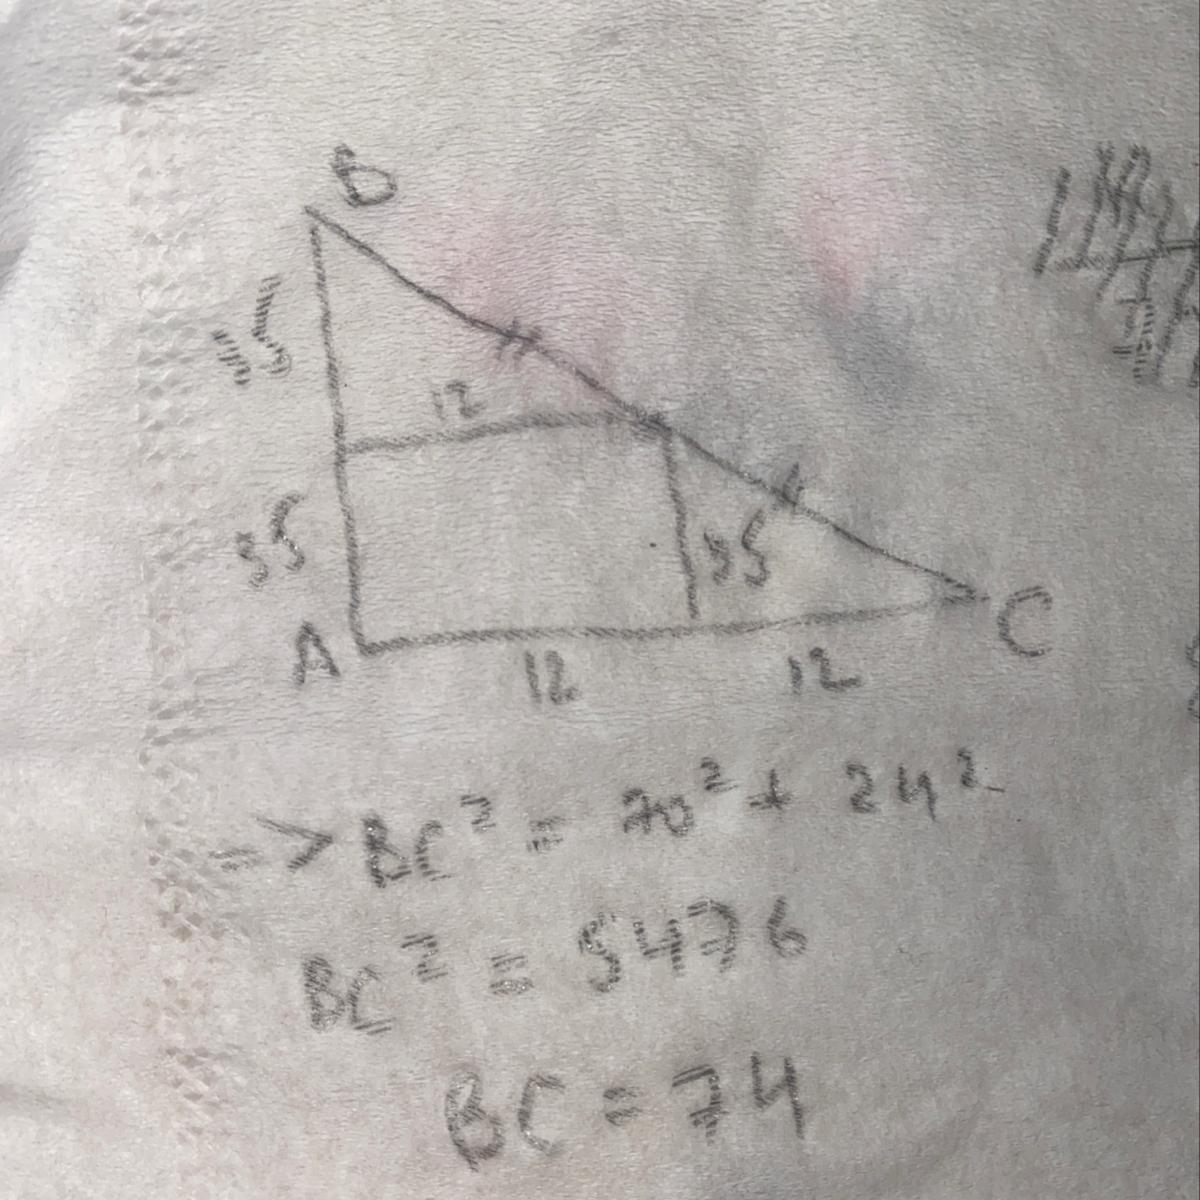 B
35
12
35
35
A
C
12
12
=> BC² = 70² + 24²
BC² = 5476
BC = 74